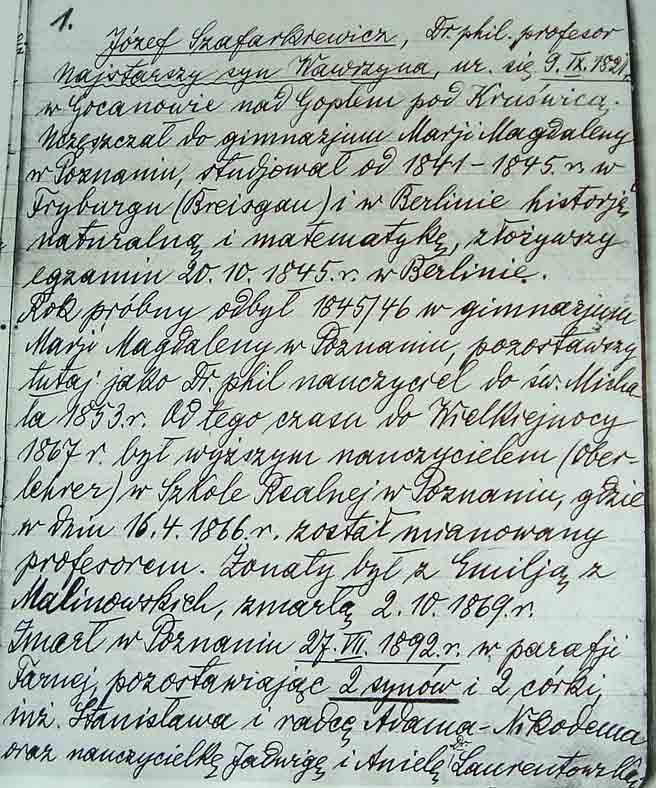 1.
Józef Szafarkiewicz, Dr phil. profesor
najstarszy syn Wawrzyna, ur. się 9. IX. 1821,
w Gocanowie nad Gopłem pod Kruświcą.
Uczęszczał do gimnazjum Marji Magdaleny
w Poznaniu, studjował od 1841-1845.r. w
Fryburgu (Breisgau) i w Berlinie historję
naturalną i matematykę, złożywszy
egzamin 20.10.1845.r. w Berlinie.
Rok próbny odbył 1845/46 w gimnazjum
Marji Magdaleny w Poznaniu, pozostawszy
tutaj jako Dr. phil nauczyciel do św. Micha-
ła 1853.r. Od tego czasu do Wielkiejnocy
1867 r. był wyższym nauczycielem (Ober-
lehrer) w Szkole Realnej w Poznaniu, gdzie
w dniu 16.4.1866.r. został mianowany
profesorem. Żonaty był z Emilją z
Malinowskich, zmarłą 2.10.1869.r.
Zmarł w Poznaniu 27.VII.1892.r. w parafji
Farnej, pozostawiając 2 synów i 2 córki,
inż. Stanisława i radcę Adama-Nikodema
oraz nauczycielkę Jadwigę i Anielę Dr